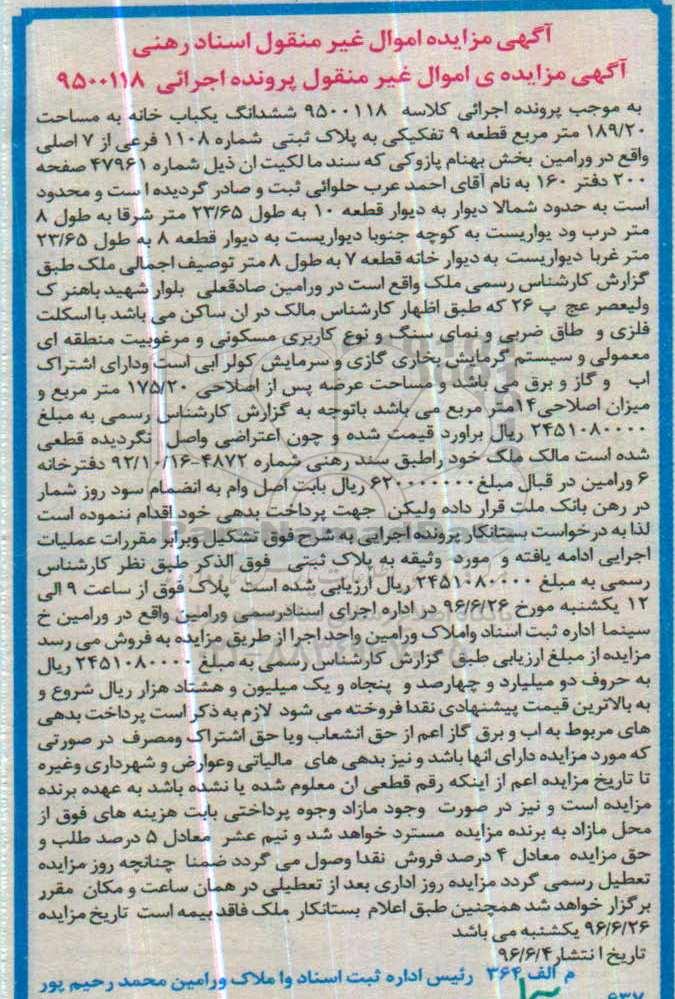 آگهی مزایده اموال غیر منقول اسناد رهنی
آگهی مزایده ی اموال غیر منقول پرونده اجرائی ۹۵۰۰۱۱۸
به موجب پرونده اجرائی کلاسه ۹۵۰۰۱۱۸ ششدانگ یکباب خانه به مساحت
۱۸۹/۲۰ متر مربع قطعه ۹ تفکیکی به پلاک ثبتی شماره ۱۱۰۸ فرعی از ۷ اصلی
واقع در ورامین بخش بهنام پازوکی که سند مالکیت ان ذیل شماره ۴۷۹۶۱ صفحه
۲۰۰ دفتر ۱۶۰ به نام آقای احمد عرب حلوائی ثبت و صادر گردیده است و محدود
است به حدود شمالا دیوار به دیوار قطعه ۱۰ به طول ۲۳/۶۵ متر شرقا به طول ۸
متر درب ود یواریست به کوچه جنوبا دیواریست به دیوار قطعه ۸ به طول ۲۳/۶۵
متر غربا دیواریست به دیوار خانه قطعه ۷ به طول ۸ متر توصیف اجمالی ملک طبق
گزارش کارشناس رسمی ملک واقع است در ورامین صادقعلی بلوار شهید باهنر ک
ولیعصر عج پ ۲۶ که طبق اظهار کارشناس مالک در ان ساکن می باشد با اسکلت
فلزی و طاق ضربی و نمای سنگ و نوع کاربری مسکونی و مرغوبیت منطقه ای
معمولی و سیستم گرمایش بخاری گازی و سرمایش کولر ابی است ودارای اشتراک
اب و گاز و برق می باشد و مساحت عرصه پس از اصلاحی ۱۷۵/۲۰ متر مربع و
میزان اصلاحی۱۴متر مربع می باشد باتوجه به گزارش کارشناس رسمی به مبلغ
۲۴۵۱۰۸۰۰۰۰ ریال براورد قیمت شده و چون اعتراضی واصل نگردیده قطعی
شده است مالک ملک خود راطبق سند رهنی شماره ۴۸۷۲-۹۲/۱۰/۱۶ دفترخانه
۶ ورامین در قبال مبلغ ۶۲۰۰۰۰۰۰۰ ریال بابت اصل وام به انضمام سود روز شمار
در رهن بانک ملت قرار داده ولیکن جهت پرداخت بدهی خود اقدام ننموده است
لذا به درخواست بستانکار پرونده اجرایی به شرح فوق تشکیل وبرابر مقررات عملیات
اجرایی ادامه یافته و مورد وثیقه به پلاک ثبتی فوق الذکر طبق نظر کارشناس
رسمی به مبلغ ۲۴۵۱۰۸۰۰۰۰ ریال ارزیابی شده است پلاک فوق از ساعت ۹ الی
۱۲ یکشنبه مورخ ۹۶/۶/۲۶ در اداره اجرای اسنادرسمی ورامین واقع در ورامین خ
سینما اداره ثبت اسناد واملاک ورامین واحد اجرا از طریق مزایده به فروش می رسد
مزایده از مبلغ ارزیابی طبق گزارش کارشناس رسمی به مبلغ ۲۴۵۱۰۸۰۰۰۰ ریال
به حروف دو میلیارد و چهارصد و پنجاه و یک میلیون و هشتاد هزار ریال شروع و
به بالاترین قیمت پیشنهادی نقدا فروخته می شود لازم به ذکر است پرداخت بدهی
های مربوط به اب و برق گاز اعم از حق انشعاب ویا حق اشتراک ومصرف در صورتی
که مورد مزایده دارای انها باشد و نیز بدهی های مالیاتی وعوارض و شهرداری وغیره
تا تاریخ مزایده اعم از اینکه رقم قطعی ان معلوم شده یا نشده باشد به عهده برنده
مزایده است و نیز در صورت وجود مازاد وجوه پرداختی بابت هزینه های فوق از
محل مازاد به برنده مزایده مسترد خواهد شد و نیم عشر معادل ۵ درصد طلب و
حق مزایده معادل ۴ درصد فروش نقدا وصول می گردد ضمنا چنانچه روز مزایده
تعطیل رسمی گردد مزایده روز اداری بعد از تعطیلی در همان ساعت و مکان مقرر
برگزار خواهد شد همچنین طبق اعلام بستانکار ملک فاقد بیمه است تاریخ مزایده
۹۶/۶/۲۶ یکشنبه می باشد
تاریخ انتشار۹۶/۶/۴
م الف ۳۶۴ رئیس اداره ثبت اسناد وا ملاک ورامین محمد رحیم پور